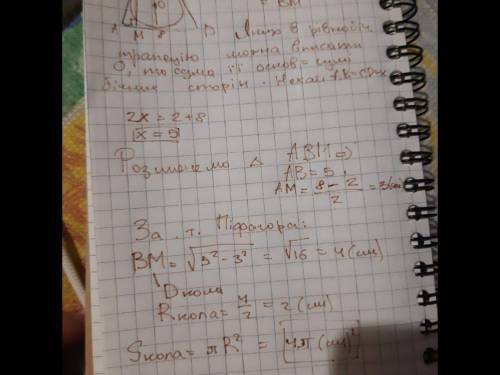 O = BM
A M 8 D Якщо в рівнобіч
трапецію можна вписати
O, то сума її основ = сумі
бічних сторін. Нехай AB=CD=x
2x = 2+8
x = 5
Розглянемо Δ ABM =>
AB = 5,
AM = 8-2/2 = 3(см)
За т. Піфагора:
BM = √5²-3² = √16 = 4 (см)
Dкола
Rкола = 4/2 = 2 (см)
Sкола = πR² = 4π (см)²